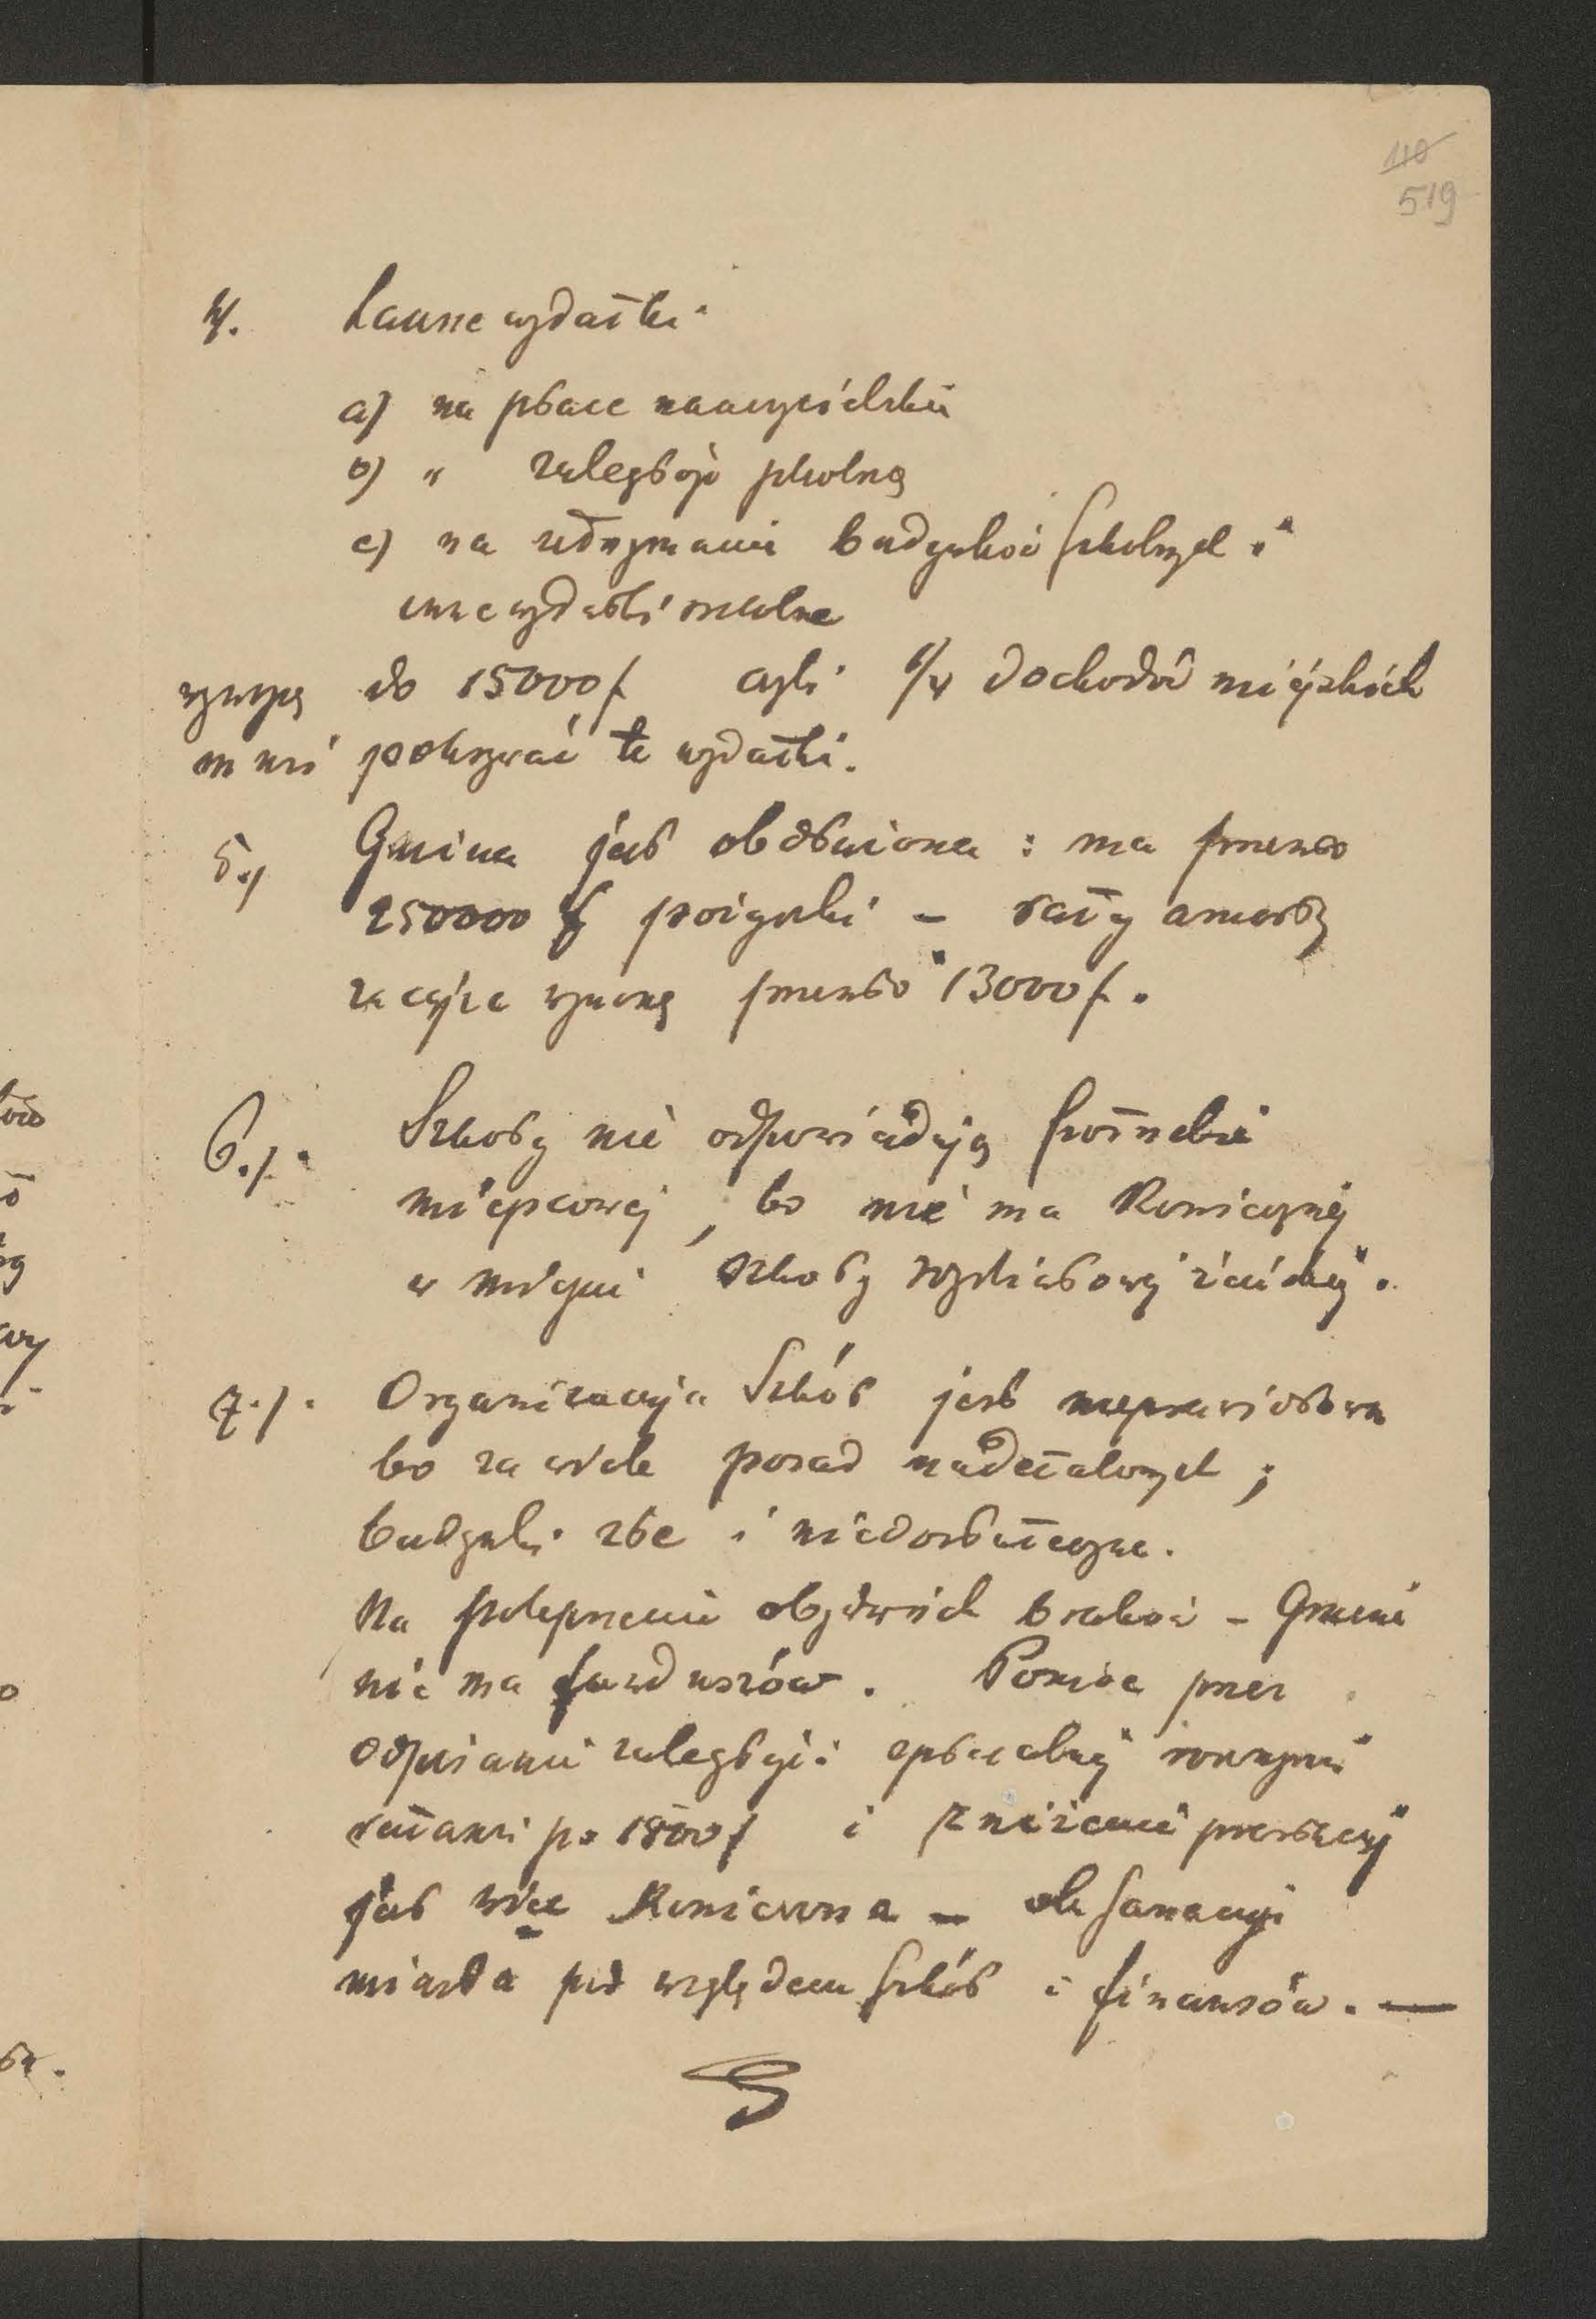 110
519
4. Łączne wydatki
a) na płace nauczycielskie
b) " zaległość szkolną
c) na utrzymanie budynków szkolnych i
inne wydatki szkolne
wynoszą do 15000 f czyli 1/4 dochodów miejskich
musi pokrywać te wydatki.
5.) Gmina jest obdłużona: ma przeszło
250000 f pożyczki – raty amorty
zacyjne wynoszą przeszło 13000 f.
6.). Szkoły nie odpowiadają potrzebie
miejscowej, bo nie ma koniecznej
w mieście szkoły wydziałowej żeńskiej.
7.). Organizacyja szkół jest nieprawidłowa
bo za wiele posad nadetatowych;
budynki złe i niedostateczne.
Na polepszenie obydwóch braków – Gmina
nie ma funduszów. Pomoc przez
odpisanie zaległości spłacalnej rocznymi
ratami po 1800 f i zniżenie prestacyj
jest więc konieczna – dla sanacyi
miasta pod względem szkół i finansów. —